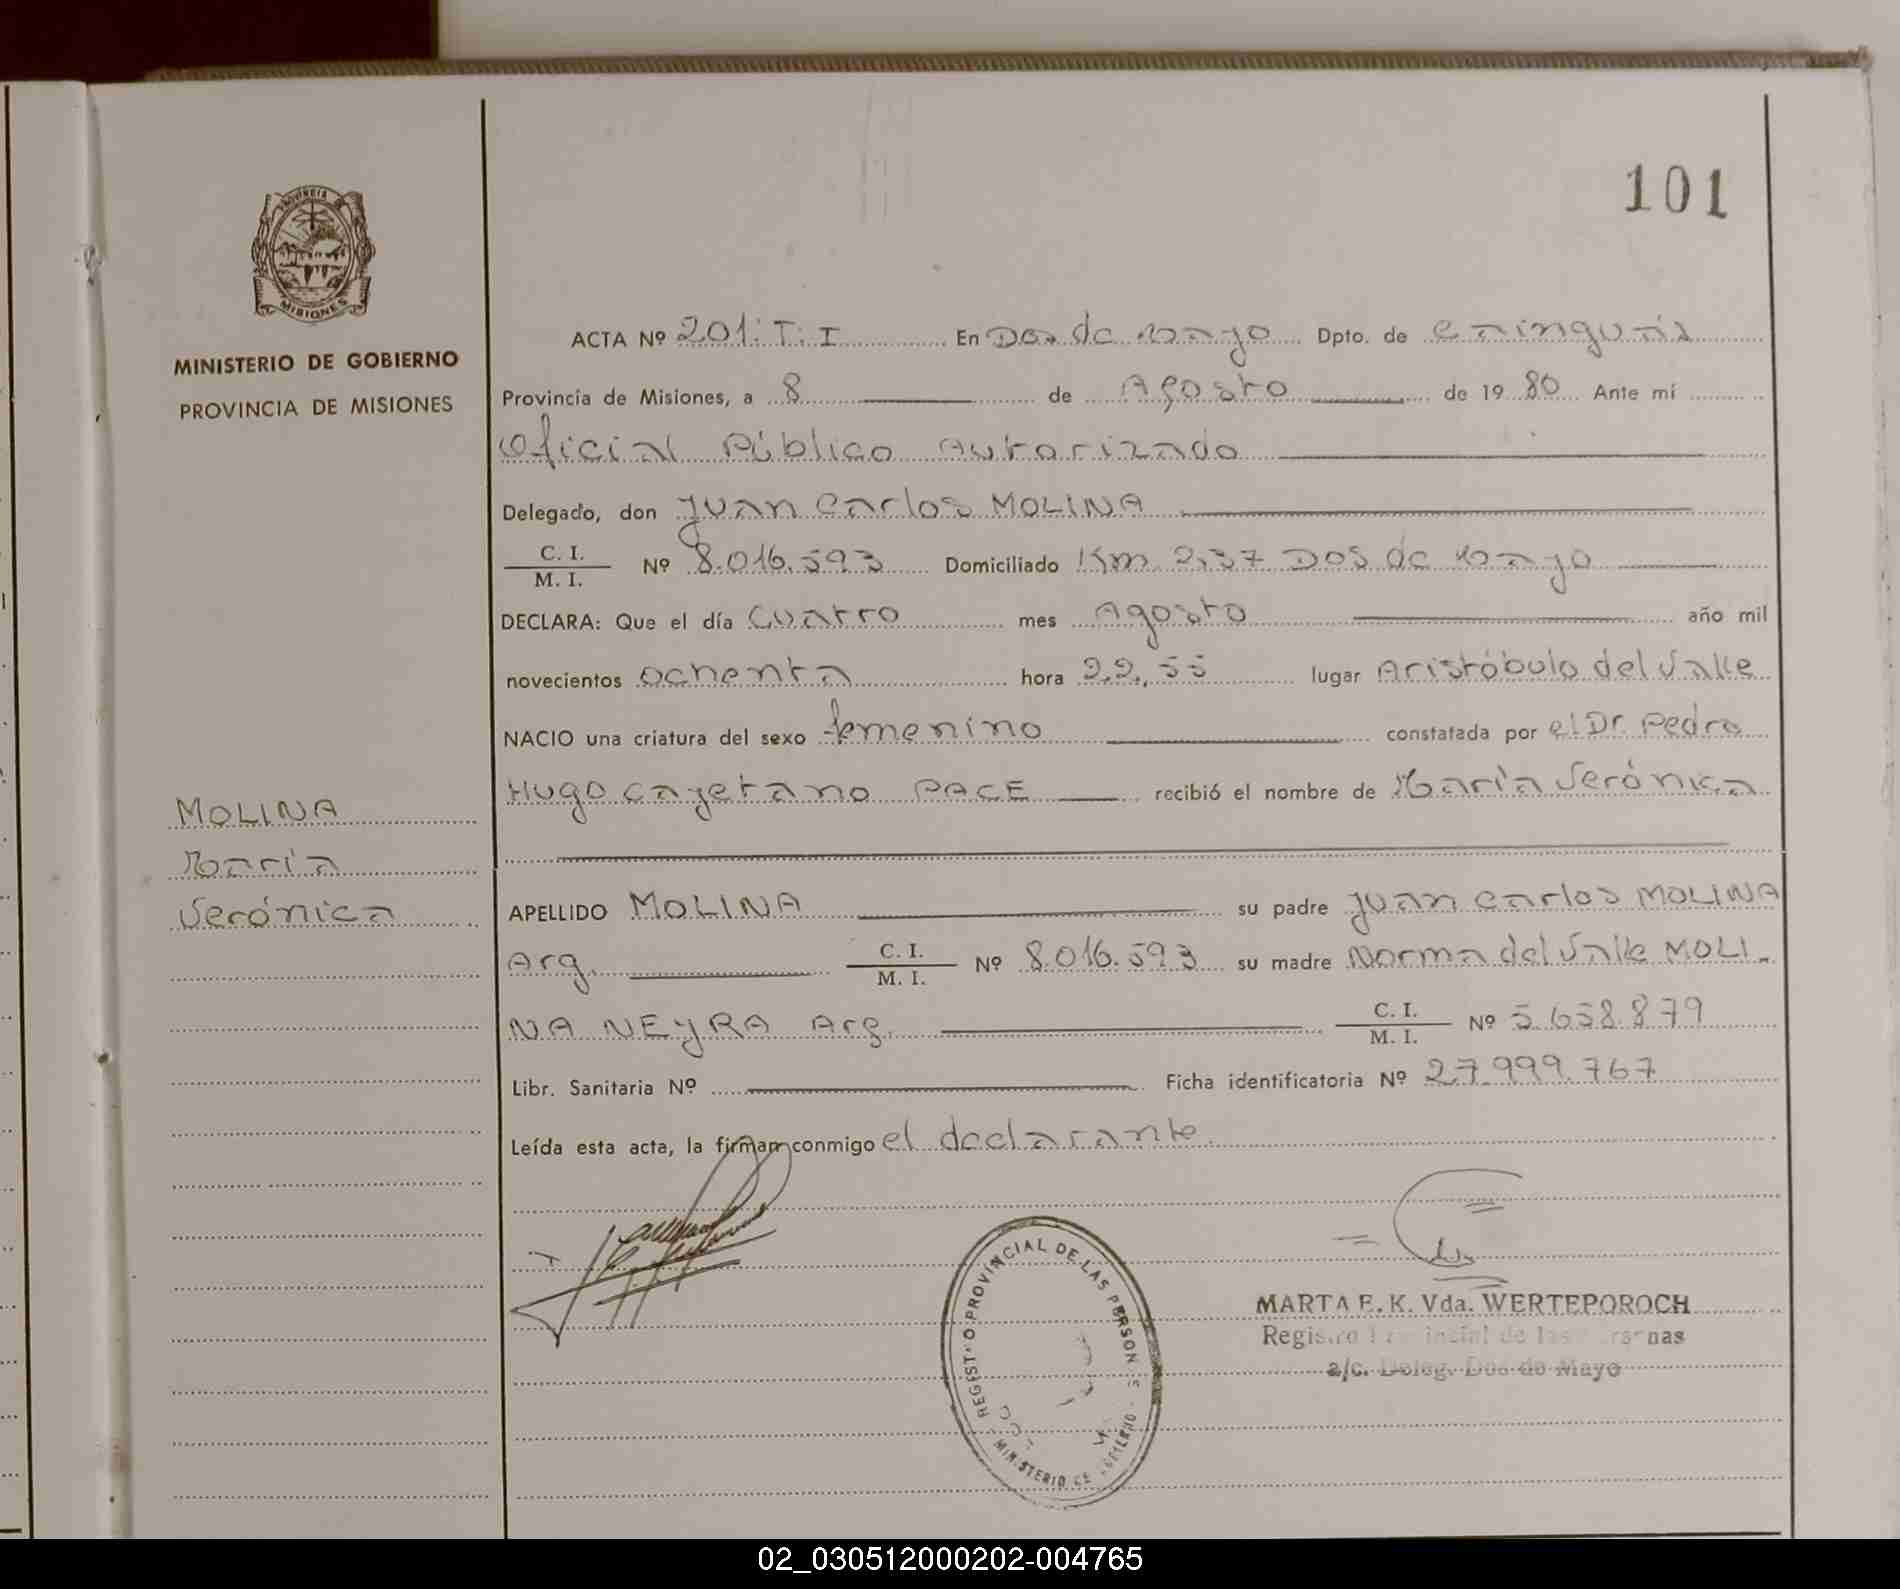 101
PROVINCIA DE
MISIONES
MINISTERIO DE GOBIERNO
PROVINCIA DE MISIONES
ACTA Nº 201: T: I En Dos de Mayo Dpto. de Cainguás
Provincia de Misiones, a 8 de Agosto de 19 80 Ante mí
Oficial Público Autorizado
Delegado, don Juan Carlos MOLINA
C. I.
M. I. Nº 8.016.593 Domiciliado Km 237 Dos de Mayo
DECLARA: Que el día Cuatro mes Agosto año mil
novecientos ochenta hora 22,55 lugar Aristóbulo del Valle
NACIO una criatura del sexo femenino constatada por el Dr. Pedro
Hugo Cayetano PACE recibió el nombre de María Verónica
MOLINA
María
Verónica
APELLIDO MOLINA su padre Juan Carlos MOLINA
Arg. C. I.
M. I. Nº 8.016.593 su madre Norma del Valle MOLI-
NA NEYRA Arg. C. I.
M. I. Nº 5.658.879
Libr. Sanitaria Nº Ficha identificatoria Nº 27.999.767
Leída esta acta, la firman conmigo el declarante.
REGISTRO PROVINCIAL DE LAS PERSONAS
MINISTERIO DE GOBIERNO
MARTA E. K. Vda. WERTEPOROCH
Registro Provincial de las Personas
a/c. Deleg. Dos de Mayo
02_030512000202-004765